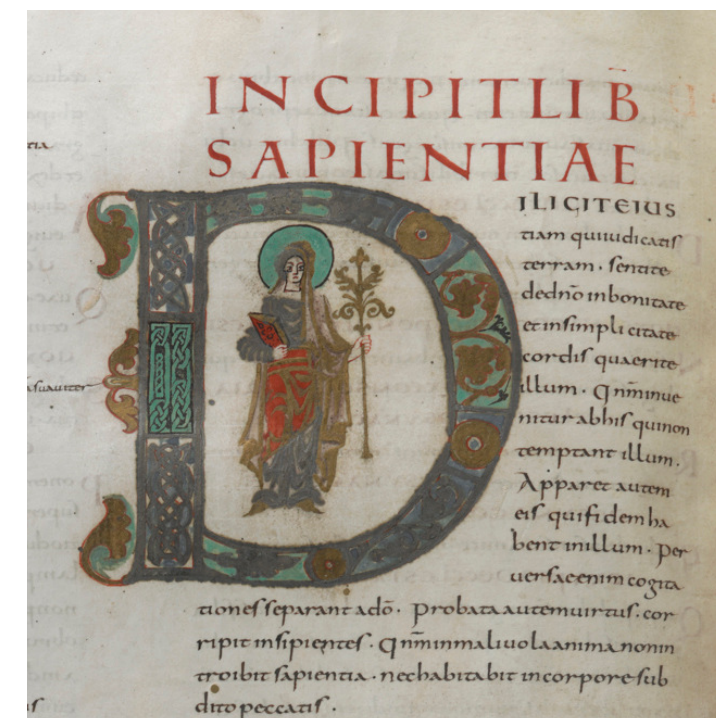 INCIPIT LIB
SAPIENTIAE
DILIGITE IUS
tiam qui iudicatis
terram · sentite
de dno in bonitate
et in simplicitate
cordis quaerite
illum · Qnm inue
nitur ab his qui non
temptant illum ·
Apparet autem
eis qui fidem ha
bent in illum · Per
uersae enim cogita
tiones separant a do · Probata autem uirtus · cor
ripit insipientes · Qnm in maliuola anima non in
troibit sapientia · nec habitabit in corpore sub
dito peccatis ·